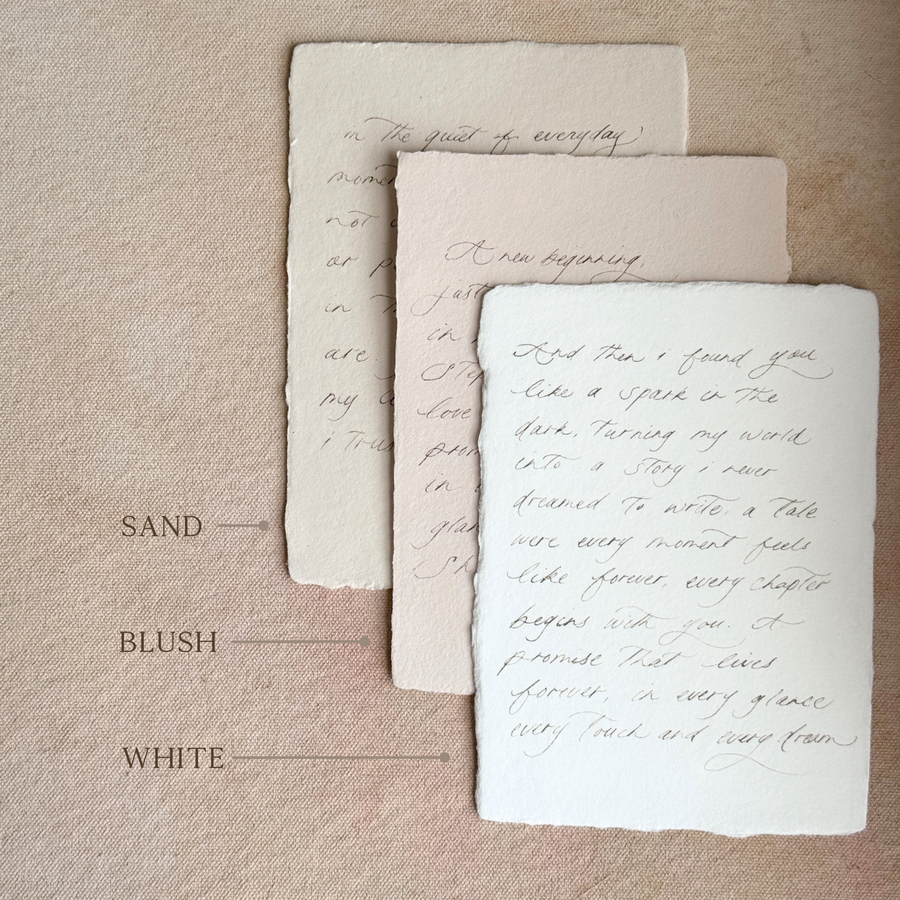 in the quiet of everyday
mome
not
or p
in
are.
my
i trus
A new beginning,
just
in
step
love
prom
in
glan
sh
And then i found you
like a spark in the
dark, turning my world
into a story i never
dreamed to write, a tale
were every moment feels
like forever, every chapter
begins with you. A
promise that lives
forever, in every glance
every touch and every dream
SAND
BLUSH
WHITE